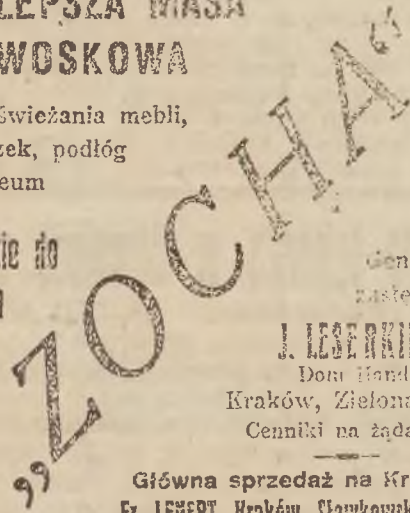 LEPSZA MASA
WOSKOWA
świeżania mebli,
zek, podłóg
eum
ie do
„ZOCHA”
Gen
zastę
J. LESERKIE
Dom Hand
Kraków, Zielona
Cenniki na żąda
Główna sprzedaż na Kr
Fr. LENERT Kraków, Sławkowsk